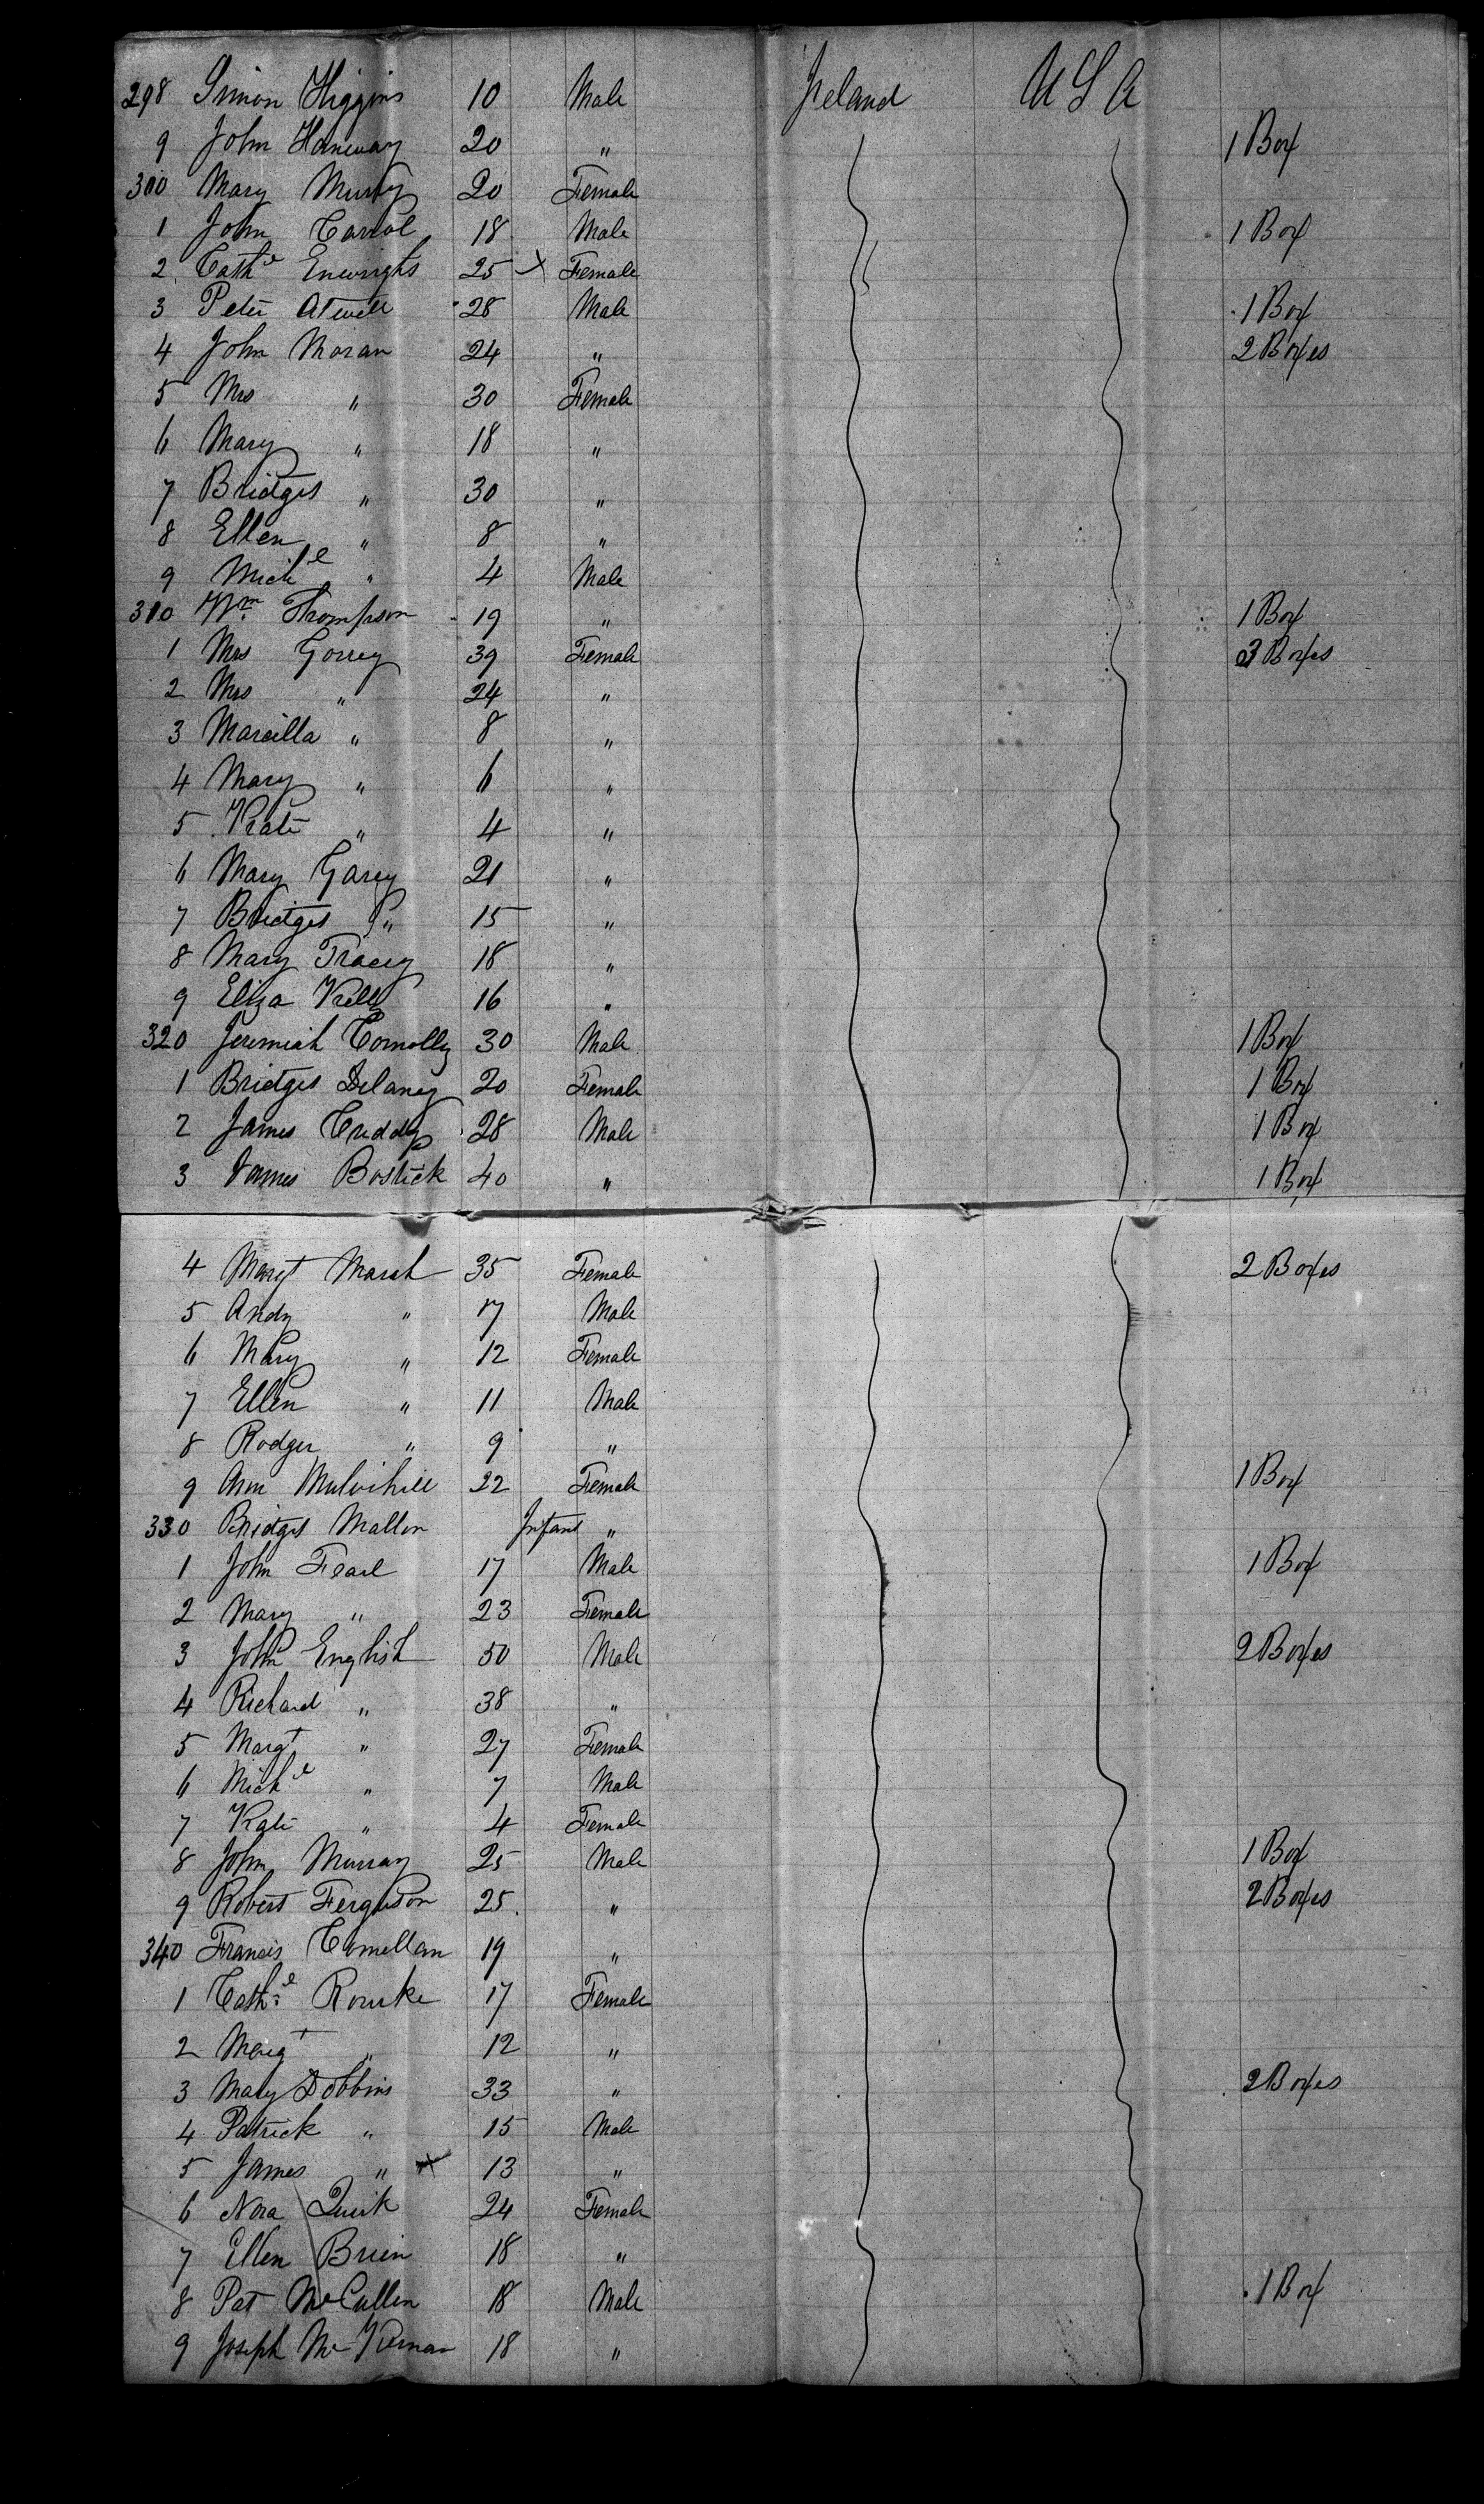 298 Simon Higgins 10 Male Ireland U S A
9 John Hanway 20 " 1 Box
300 Mary Murty 20 Female
1 John Carrol 18 Male 1 Box
2 Cathe Enwright 25 x Female
3 Peter Atwell 28 Male 1 Box
4 John Moran 24 " 2 Boxes
5 Mrs " 30 Female
6 Mary " 18 "
7 Bridget " 30 "
8 Ellen " 8 "
9 Michl " 4 Male
310 Wm Thompson 19 " 1 Box
1 Mrs Gorrey 39 Female 3 Boxes
2 Mrs " 24 "
3 Marcilla " 8 "
4 Mary " 6 "
5 Kate " 4 "
6 Mary Garey 21 "
7 Bridget " 15 "
8 Mary Tracey 18 "
9 Eliza Kelly 16 "
320 Jeremiah Connolly 30 Male 1 Box
1 Bridget Delaney 20 Female 1 Box
2 James Cuddy 28 Male 1 Box
3 James Bostick 40 " 1 Box
4 Margt Marsh 35 Female 2 Boxes
5 Andy " 17 Male
6 Mary " 12 Female
7 Ellen " 11 Male
8 Rodger " 9 "
9 Ann Mulvihill 22 Female 1 Box
330 Bridget Mallon Infant "
1 John 17 Male 1 Box
2 Mary " 23 Female
3 John English 50 Male 2 Boxes
4 Richard " 38 "
5 Margt " 27 Female
6 Michl " 7 Male
7 Kate " 4 Female
8 John Murray 25 Male 1 Box
9 Robert Ferguson 25 " 2 Boxes
340 Francis 19 "
1 Cathe Rourke 17 Female
2 Margt " 12 "
3 Mary Dobbins 33 " 2 Boxes
4 Patrick " 15 Male
5 James " x 13 "
6 Nora Quirk 24 Female
7 Ellen Brien 18 "
8 Pat McCullen 18 Male 1 Box
9 Joseph McKernan 18 "